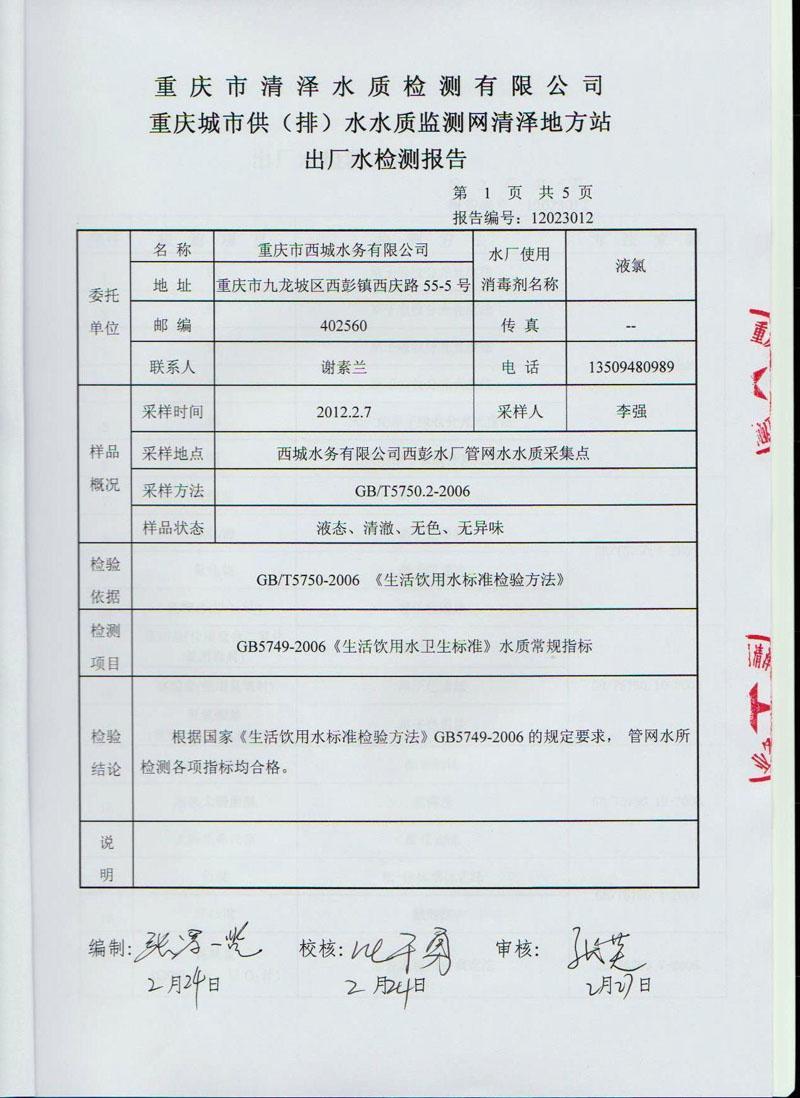 重庆市清泽水质检测有限公司
重庆城市供（排）水水质监测网清泽地方站
出厂水检测报告
第 1 页 共 5 页
报告编号：12023012
委托单位
名 称 重庆市西城水务有限公司 水厂使用消毒剂名称 液氯
地 址 重庆市九龙坡区西彭镇西庆路 55-5 号
邮 编 402560 传 真 --
联系人 谢素兰 电 话 13509480989
样品概况
采样时间 2012.2.7 采样人 李强
采样地点 西城水务有限公司西彭水厂管网水水质采集点
采样方法 GB/T5750.2-2006
样品状态 液态、清澈、无色、无异味
检验依据 GB/T5750-2006 《生活饮用水标准检验方法》
检测项目 GB5749-2006《生活饮用水卫生标准》水质常规指标
检验结论
根据国家《生活饮用水标准检验方法》GB5749-2006 的规定要求， 管网水所
检测各项指标均合格。
说明
编制： 校核： 审核：
2月24日 2月24日 2月27日